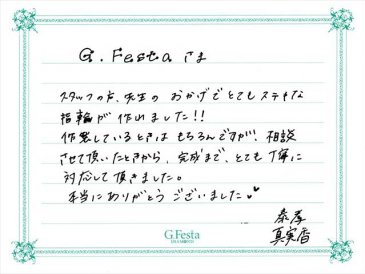 G.Festa さま
スタッフの方、先生の おかげで とても ステキな
指輪が 作れました!!
作製しているときは もちろんですが、相談
させて頂いたときから、完成まで、とても 丁寧に
対応して 頂きました。
本当に ありがとう ございました♥
泰孝
真実香
G.Festa